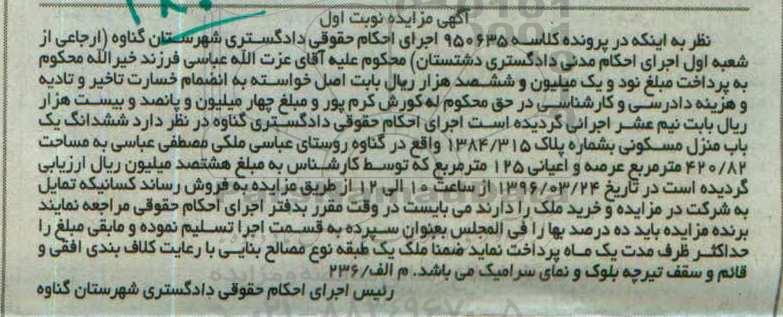 آگهی مزایده نوبت اول
نظر به اینکه در پرونده کلاسه ۹۵۰۶۳۵ اجرای احکام حقوقی دادگستری شهرستان گناوه (ارجاعی از
شعبه اول اجرای احکام مدنی دادگستری دشتستان) محکوم علیه آقای عزت الله عباسی فرزند خیرالله محکوم
به پرداخت مبلغ نود و یک میلیون و ششصد هزار ریال بابت اصل خواسته به انضمام خسارت تاخیر و تادیه
و هزینه دادرسی و کارشناسی در حق محکوم له کورش کرم پور و مبلغ چهار میلیون و پانصد و بیست هزار
ریال بابت نیم عشر اجرائی گردیده است اجرای احکام حقوقی دادگستری گناوه در نظر دارد ششدانگ یک
باب منزل مسکونی بشماره پلاک ۱۳۸۴/۳۱۵ واقع در گناوه روستای عباسی ملکی مصطفی عباسی به مساحت
۴۲۰/۸۲ مترمربع عرصه و اعیانی ۱۲۵ مترمربع که توسط کارشناس به مبلغ هشتصد میلیون ریال ارزیابی
گردیده است در تاریخ ۱۳۹۶/۰۳/۲۴ از ساعت ۱۰ الی ۱۲ از طریق مزایده به فروش رساند کسانیکه تمایل
به شرکت در مزایده و خرید ملک را دارند می بایست در وقت مقرر بدفتر اجرای احکام حقوقی مراجعه نمایند
برنده مزایده باید ده درصد بها را فی المجلس بعنوان سپرده به قسمت اجرا تسلیم نموده و مابقی مبلغ را
حداکثر ظرف مدت یک ماه پرداخت نماید ضمنا ملک یک طبقه نوع مصالح بنایی با رعایت کلاف بندی افقی و
قائم و سقف تیرچه بلوک و نمای سرامیک می باشد. م الف/۲۳۶
رئیس اجرای احکام حقوقی دادگستری شهرستان گناوه